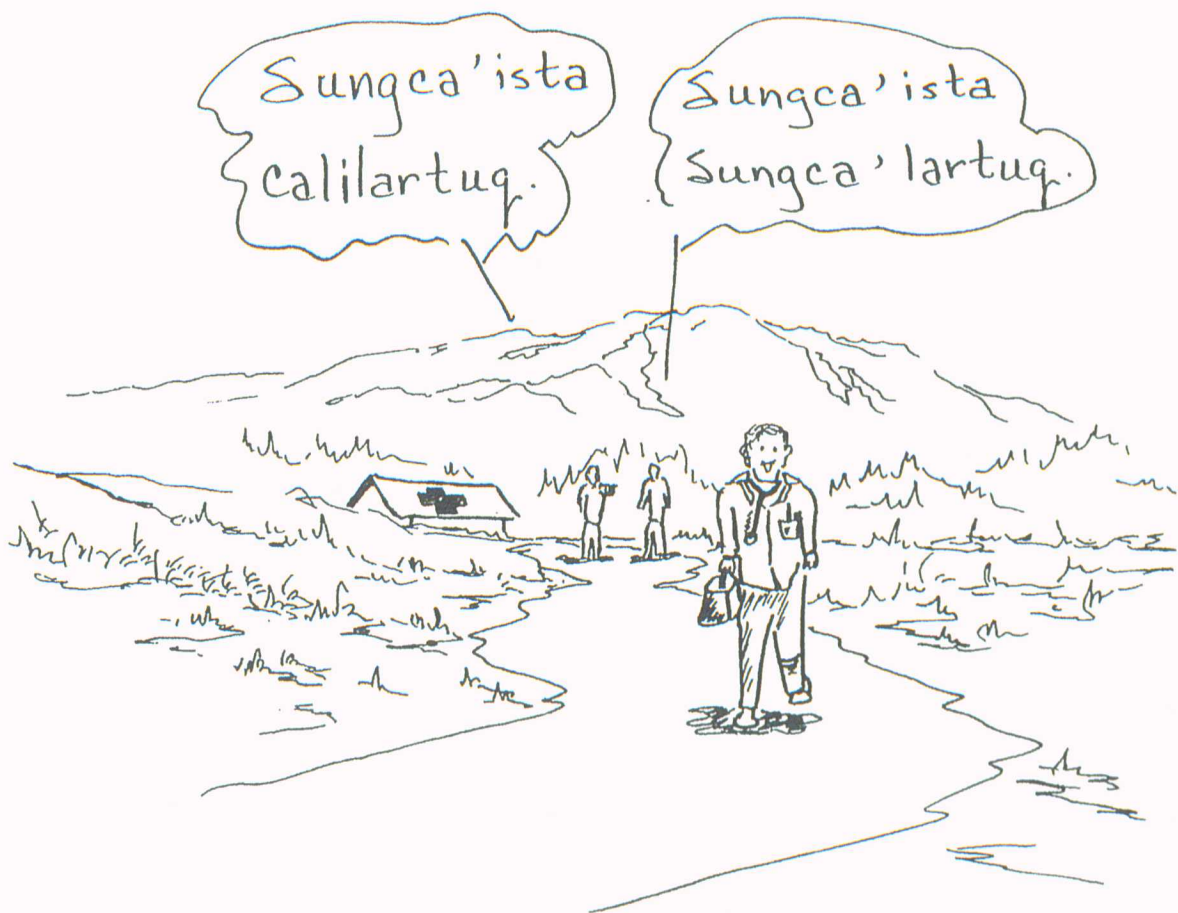 Sungca'ista
calilartuq.
Sungca'ista
Sungca'lartuq.